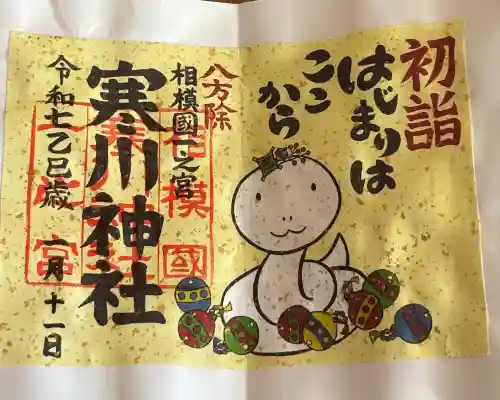 初詣
はじまりは
ここ
から
八方除
相模國一之宮
寒川神社
令和七乙巳歳 一月十一日
相模國
一之宮